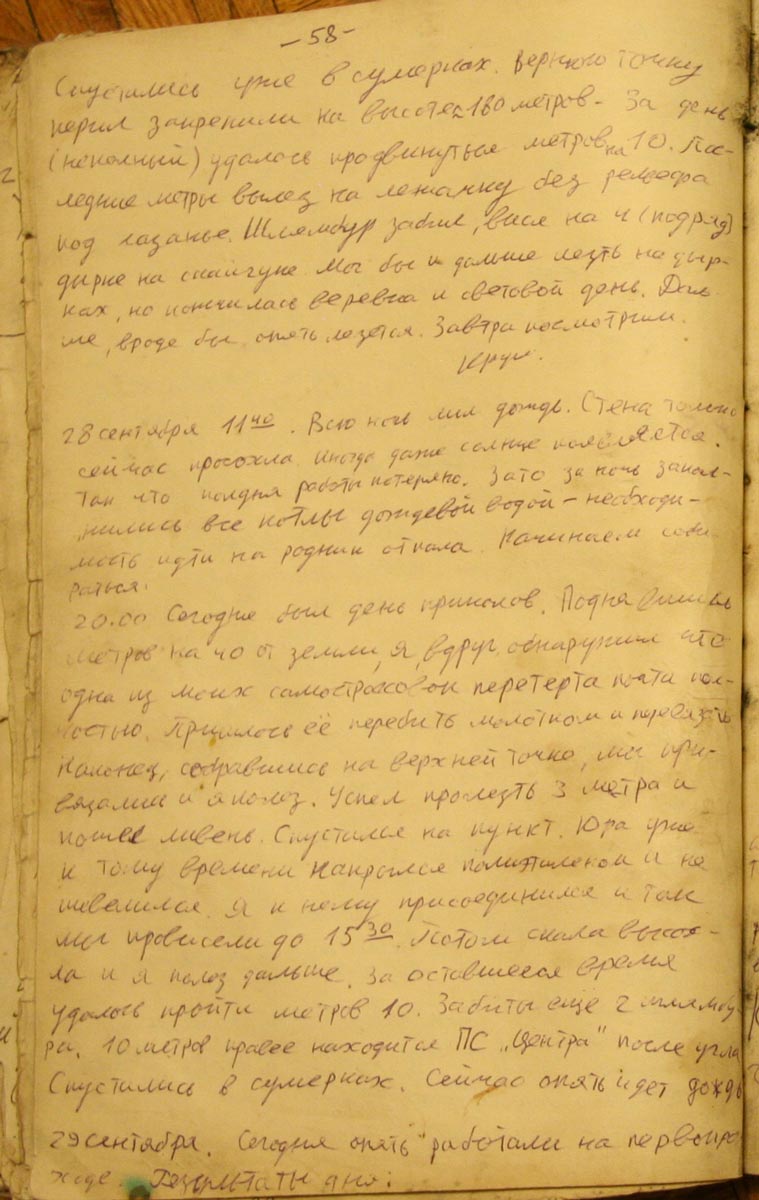 - 58 -
Спустились уже в сумерках. Верхнюю точку
перил закрепили на высоте ≈180 метров. За день
(неполный) удалось продвинуться метров на 10. Пос-
ледние метры вылез на лежанку без рельефа
под лазанье. Шлямбур забил, вися на 4 (подряд)
дырке на скайгуке. Мог бы и дальше лезть на дыр-
ках, но кончилась веревка и световой день. Даль-
ше, вроде бы, опять лезется. Завтра посмотрим.
28 сентября 11 40. Всю ночь лил дождь. Стена только
сейчас просохла. Иногда даже солнце появляется.
Так что полдня работы потеряно. Зато за ночь запол-
нились все котлы дождевой водой – необходи-
мость идти на родник отпала. Начинаем соби-
раться.
20.00 Сегодня был день приколов. Поднявшись
метров на 40 от земли, я, вдруг, обнаружил что
одна из моих самостраховок перетерта почти пол-
ностью. Пришлось её перебить молотком и перевязать
Наконец, собравшись на верхней точке, мы при-
вязались и я полез. Успел пролезть 3 метра и
пошел ливень. Спустился на пункт. Юра уже
к тому времени накрылся полиэтиленом и не
шевелился. Я к нему присоединился и так
мы провисели до 15 30. Потом скала высох-
ла и я полез дальше. За оставшееся время
удалось пройти метров 10. Забиты еще 2 шлямбу-
ра. 10 метров правее находится ПС „Центра" после угла
Спустились в сумерках. Сейчас опять идет дождь
29 сентября. Сегодня опять работали на первопро-
ходе. Результаты дня: